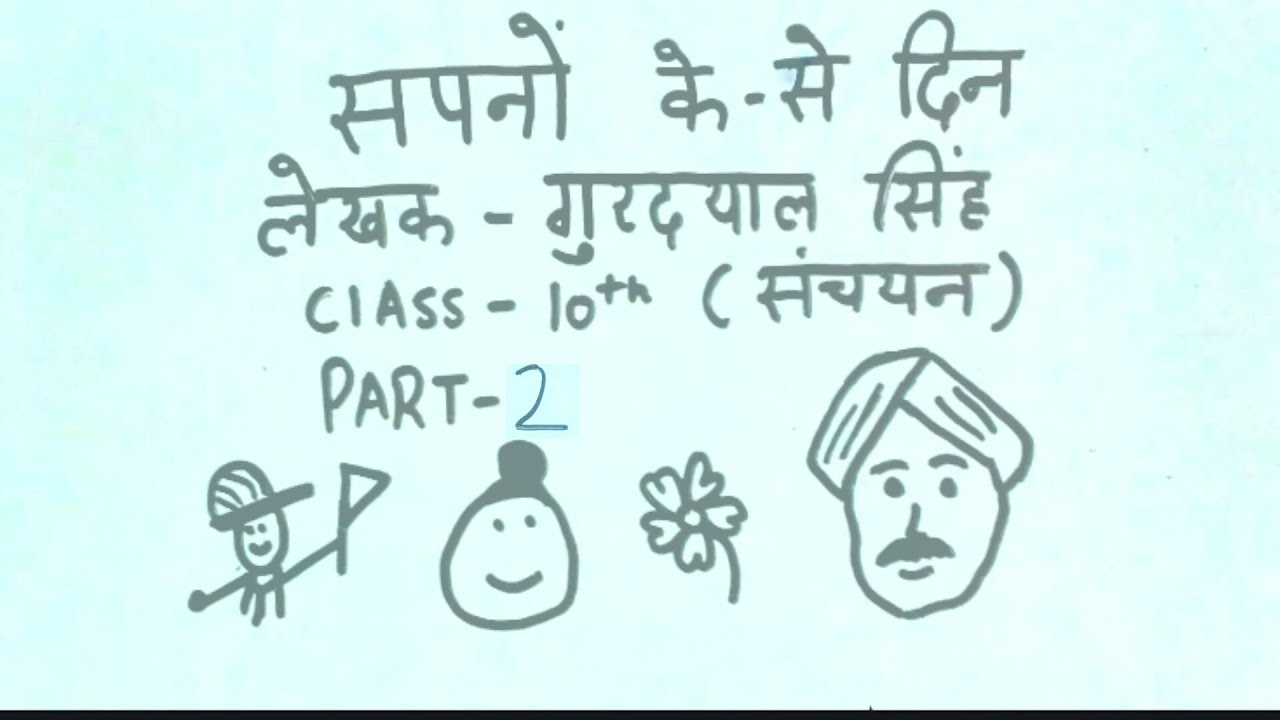 सपनों के-से दिन
लेखक - गुरदयाल सिंह
CLASS - 10th (संचयन)
PART-2